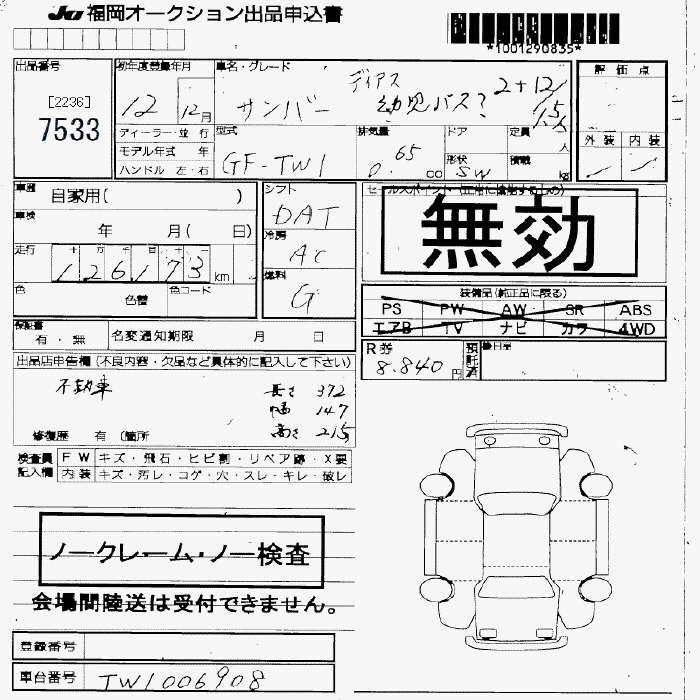 JU 福岡オークション出品申込書
*1001290835*
出品番号 初年度登録年月 車名・グレード 評価点
[2236] 7533
12 12月 サンバー ディアス 幼児バス? 2+12/1.5人
ディーラー・並行 型式 排気量 ドア 定員 人 外装 内装
モデル年式 年 GF-TW1 0.65 00 形状 SW 積載 kg
ハンドル 左・右
車歴 自家用( ) シフト DAT セールスポイント
無効
車検 年 月( 日) 冷房 AC
走行 十 万 千 百 十 一 126173 km 燃料 G
色 色替 色コード
装備品(純正品に限る)
PS PW AW SR ABS
エアB TV ナビ カワ 4WD
保証書 有・無 名変通知期限 月 日
R券 8.840円 預託済 後日品
出品店申告欄(不良内容・欠品など具体的に記入して下さい)
不動車 長さ 372
幅 147
高さ 215
修復歴 有 (箇所
検査員 FW キズ・飛石・ヒビ割・リペア跡・X要
記入欄 内装 キズ・汚レ・コゲ・穴・スレ・キレ・破レ
ノークレーム・ノー検査
会場間陸送は受付できません。
登録番号
車台番号 TW1006908